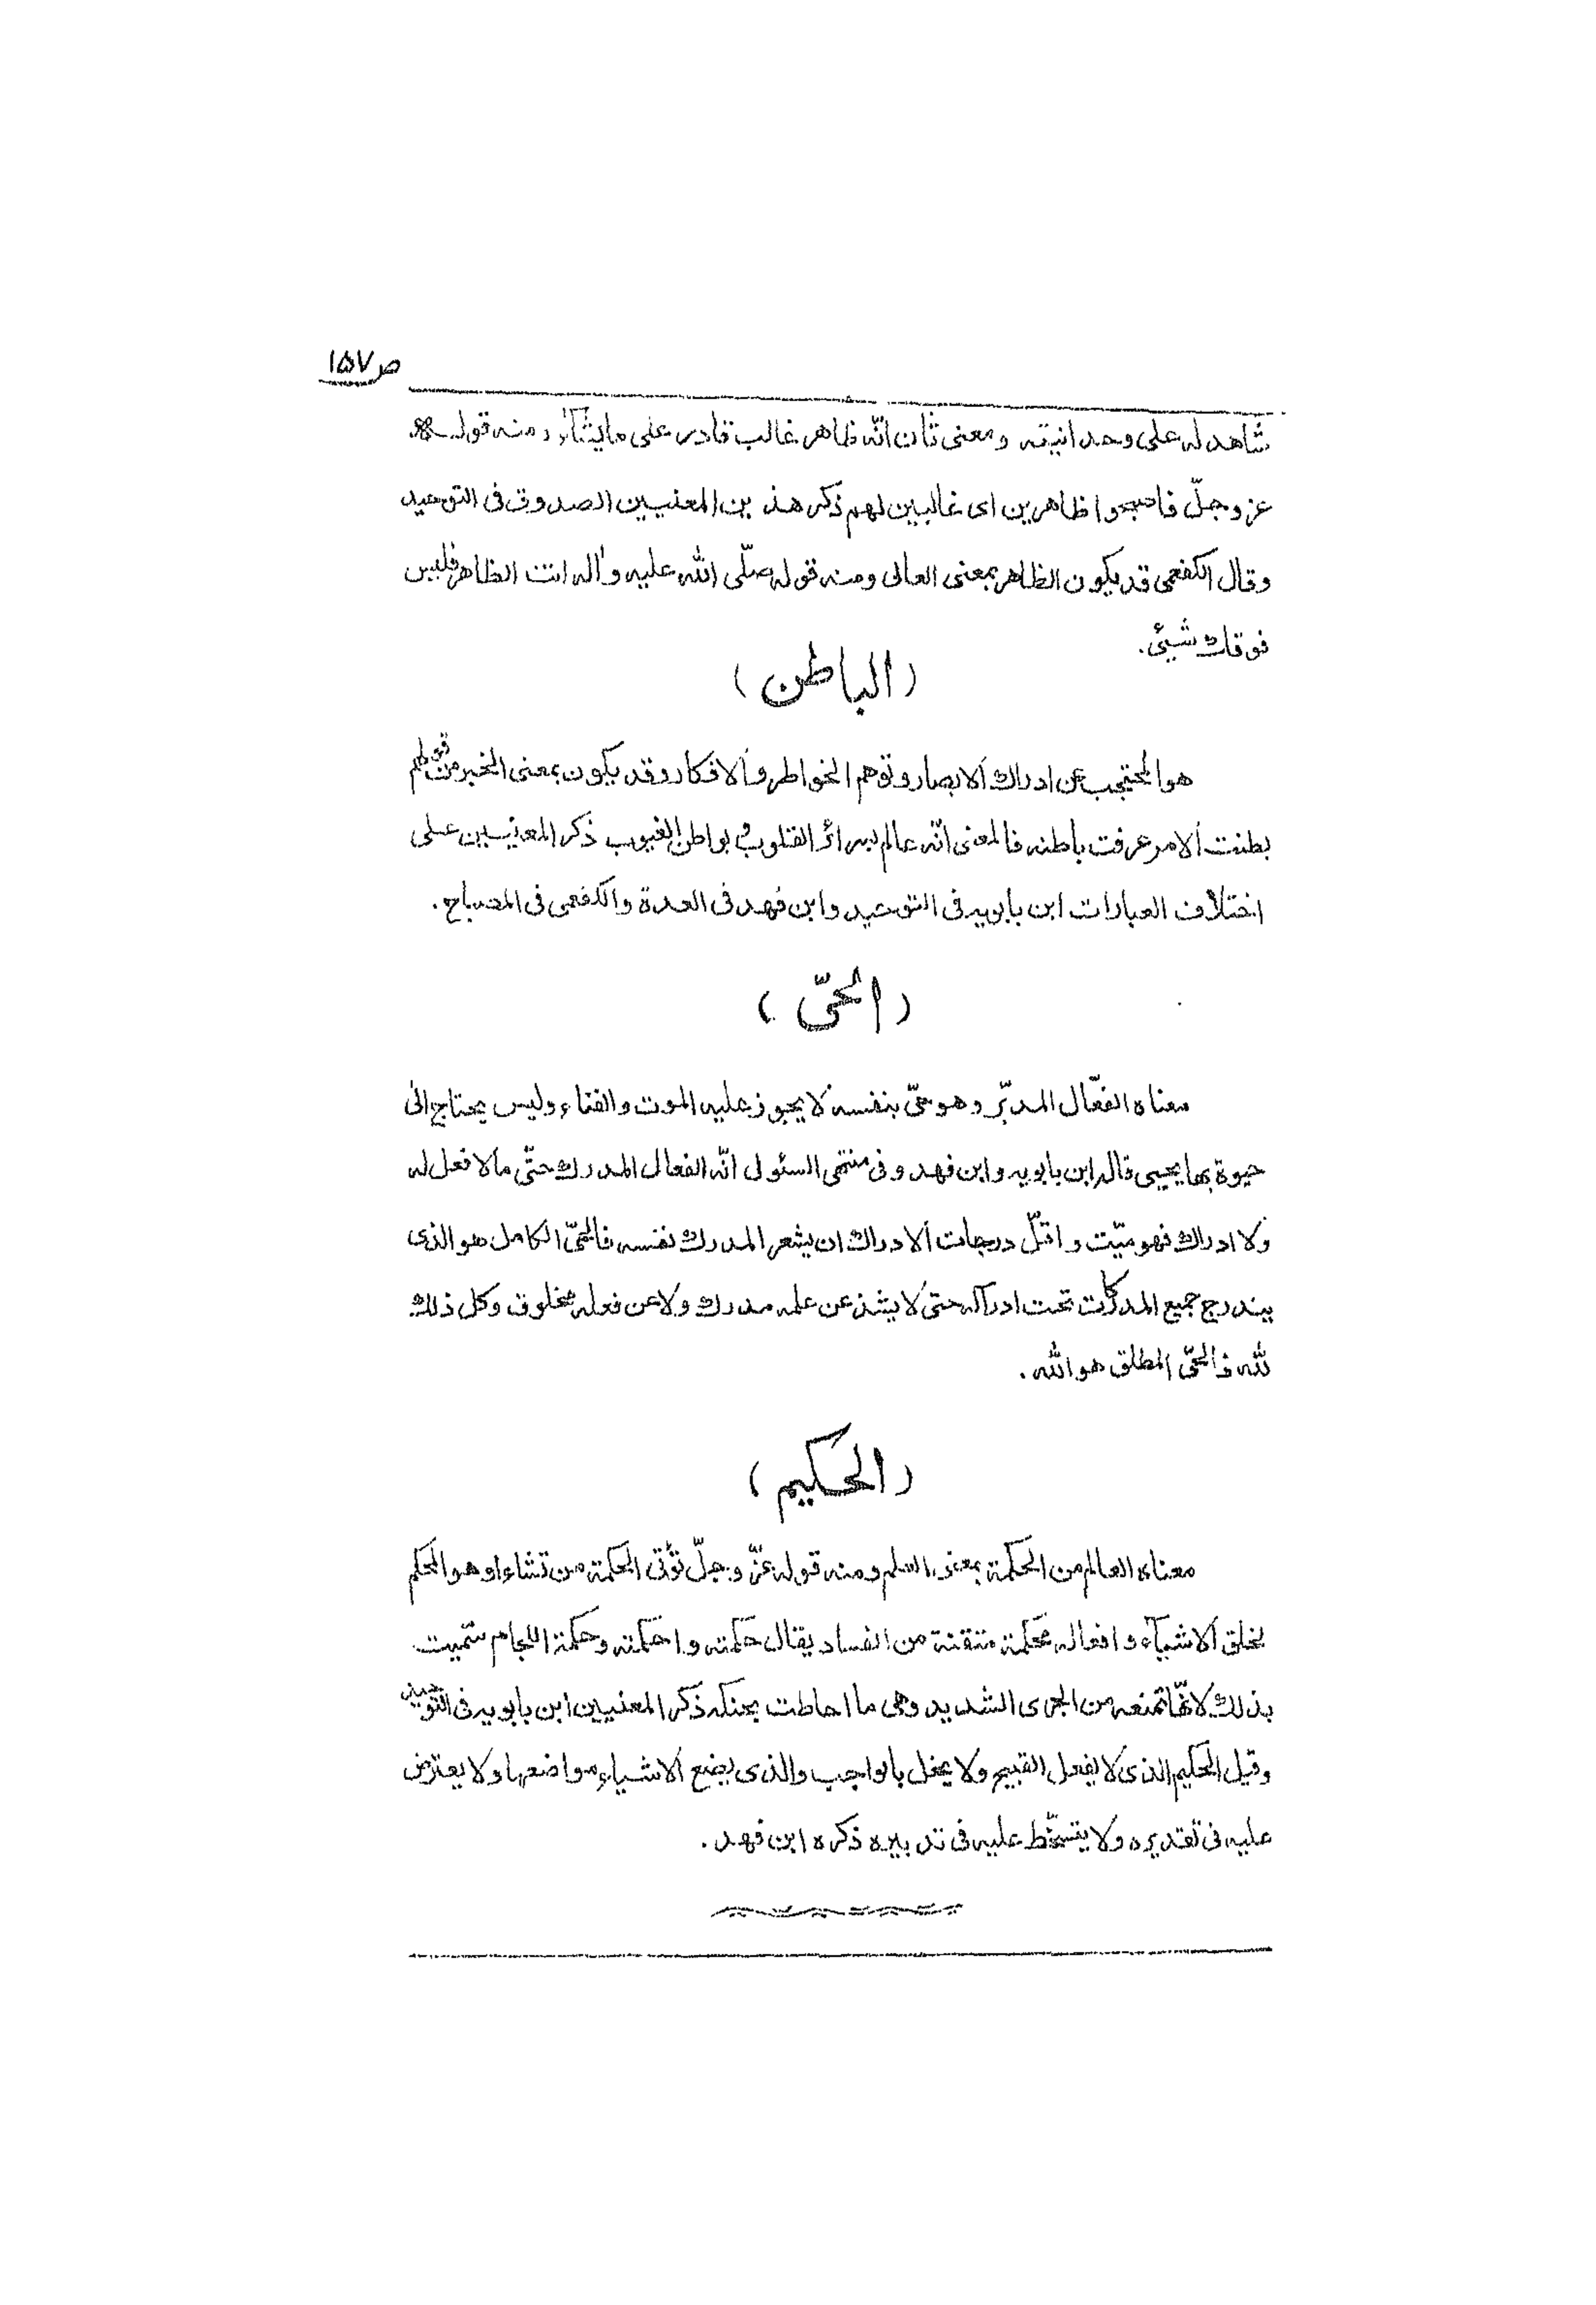 ص ۱۵۷
شاهد له على وحدانيته ومعنى ثان انّه ظاهر غالب قادر على ما يشآء ومنه قوله
عز وجلّ فاصبحوا ظاهرين اى غالبين لهم ذكر هذين المعنيين الصدوق فى التوحيد
وقال الكفعمى قد يكون الظاهر بمعنى العالى ومنه قوله صلّى الله عليه وآله انت الظاهر فليس
فوقك شيئى.
(الباطن)
هو المحتجب عن ادراك الابصار وتوهم الخواطر والافكار وقد يكون بمعنى الخبر من قولهم
بطنت الامر عرفت باطنه فالمعنى انّه عالم بسرائر القلوب و بواطن الغيوب ذكر المعنيين على
اختلاف العبارات ابن بابويه فى التوحيد وابن فهد فى العدة والكفعمى فى المصباح.
(الحىّ)
معناه الفعّال المدبّر وهو حىّ بنفسه لا يجوز عليه الموت والفناء وليس يحتاج الى
حيوة بها يحيى قاله ابن بابويه وابن فهد وفى منتهى السئول انّه الفعال المدرك حتّى ما لا فعل له
ولا ادراك فهو ميّت واقلّ درجات الادراك ان يشعر المدرك نفسه فالحىّ الكامل هو الذى
يندرج جميع المدركات تحت ادراكه حتى لا يشذ عن علمه مدرك ولا عن فعله مخلوق وكل ذلك
لله فالحىّ المطلق هو الله.
(الحكيم)
معناه العالم من الحكمة بمعنى العلم ومنه قوله عزّ وجلّ تؤتى الحكمة من تشاء او هو المحكم
لخلق الاشيآء وافعاله محكمة متقنة من الفساد يقال حكمته واحكمته وحكمة اللجام سمّيت
بذلك لانّها تمنعه من الجرى الشديد وهى ما احاطت بحنكه ذكر المعنيين ابن بابويه فى التوحيد
وقيل الحكيم الذى لا يفعل القبيح ولا يخل بالواجب والذى يضع الاشياء مواضعها ولا يعترض
عليه فى تقديره ولا يتسخّط عليه فى تدبيره ذكره ابن فهد.